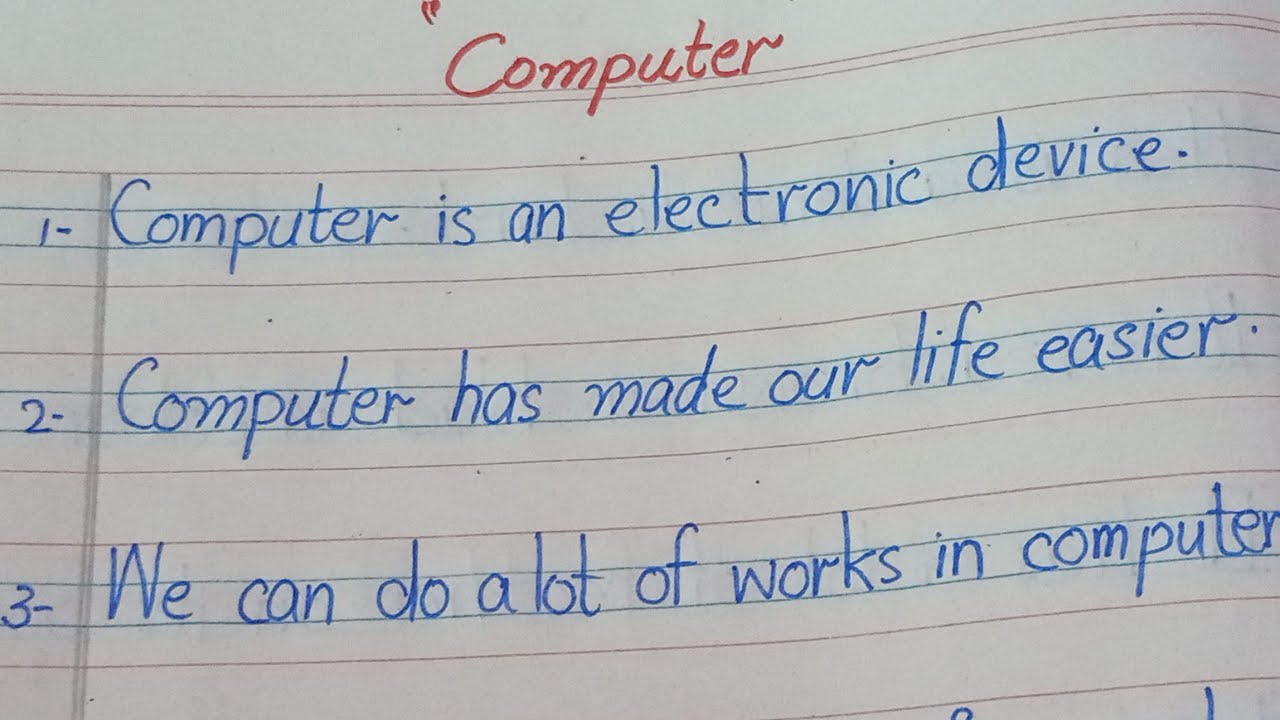 "Computer
1- Computer is an electronic device.
2- Computer has made our life easier.
3- We can do a lot of works in computer